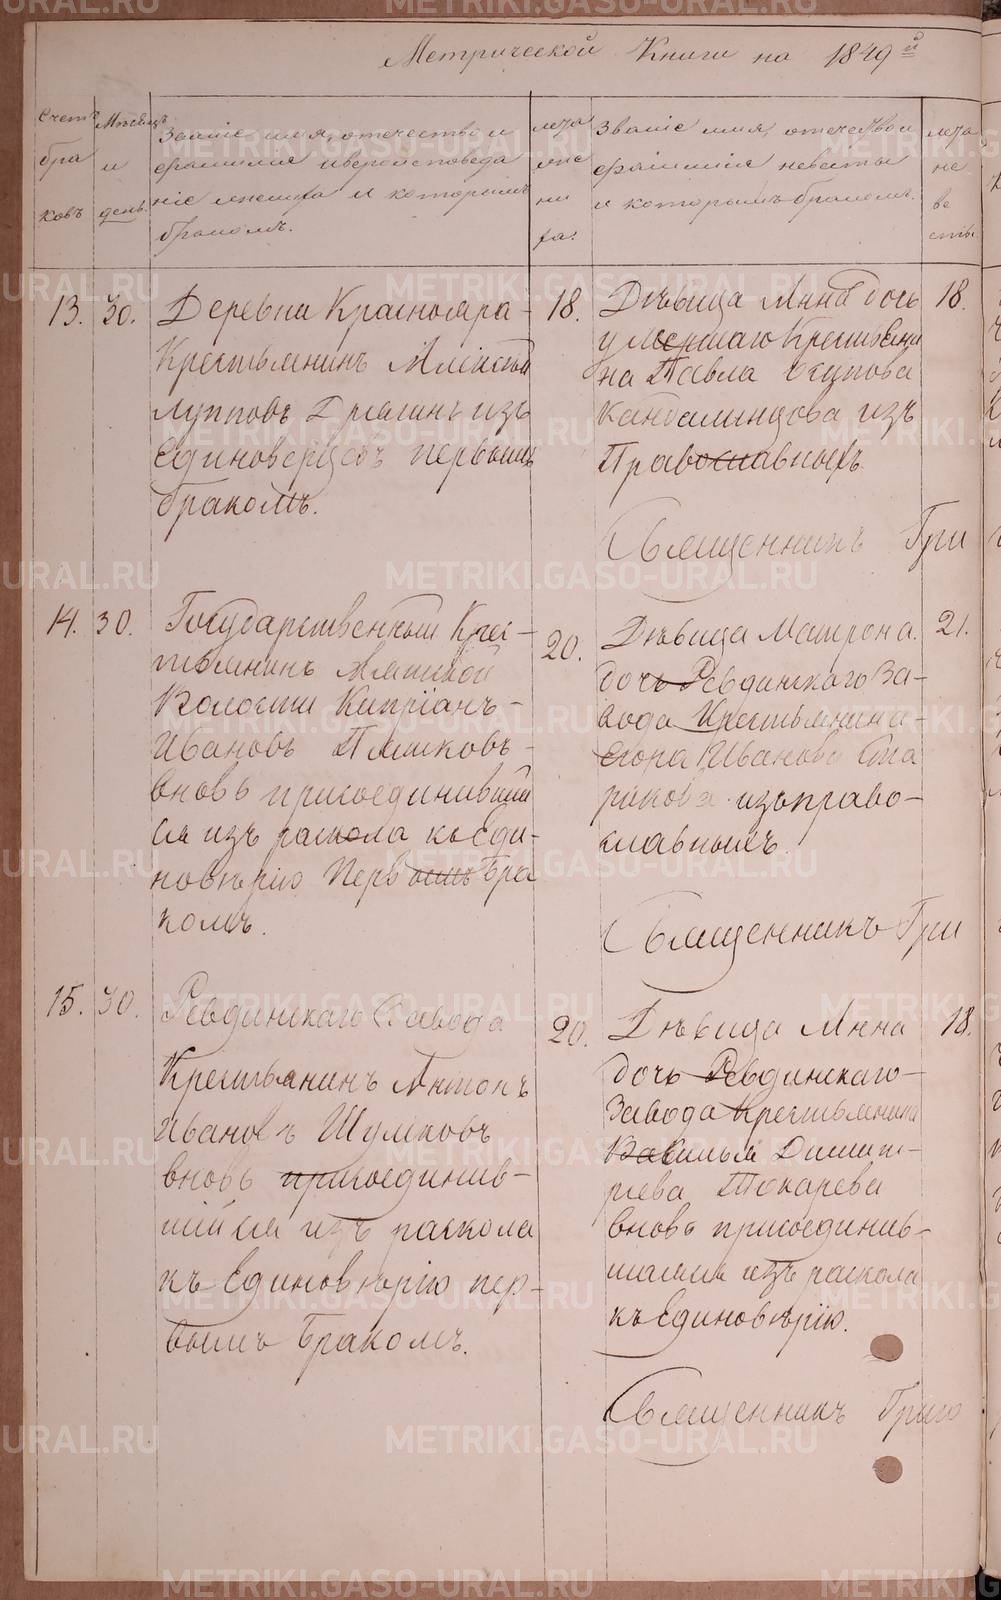 Метрической Книги на 1849й
Счетъ
бра
ковъ
Мѣсяцъ
и
день.
Званіе имя, отечество и
фамилия и вероисповеда
ніе жениха и которымъ
бракомъ.
лета
же
ни
ха:
Званіе имя, отечество и
фамилия невесты
и которымъ бракомъ.
лета
не
ве
сты
13. 30.
Деревни Краснояра-
Крестьянинъ Алексей
Лупповъ Дрягинъ изъ
Единоверцовъ первымъ
бракомъ.
18.
Дѣвица Анна дочь
умершаго Крестьяни
на Павла
изъ
Православныхъ.
18.
Священникъ Гри
14. 30.
Государственный Крес-
тьянинъ
Волости Кипріанъ-
Ивановъ Пляшковъ-
вновь присоединивший
ся изъ раскола къ Еди-
новѣрію Первымъ бра
комъ.
20.
Дѣвица Матрона.
дочь Ревдинскаго За-
вода Крестьянина-
Егора Иванова
изъ право-
славныхъ.
21.
Священникъ Гри
15. 30.
Ревдинскаго Завода
Крестьянинъ Антонъ
Ивановъ Шумковъ
вновь присоединив-
шийся изъ раскола
къ Единовѣрію пер-
вымъ бракомъ.
20.
Дѣвица Анна
дочь Ревдинскаго-
Завода Крестьянина
Вавилы Димит-
риева Токарева
вновь присоединив-
шаяся изъ раскола
къ Единовѣрію.
18.
Священникъ Григо
METRIKI.GASO-URAL.RU